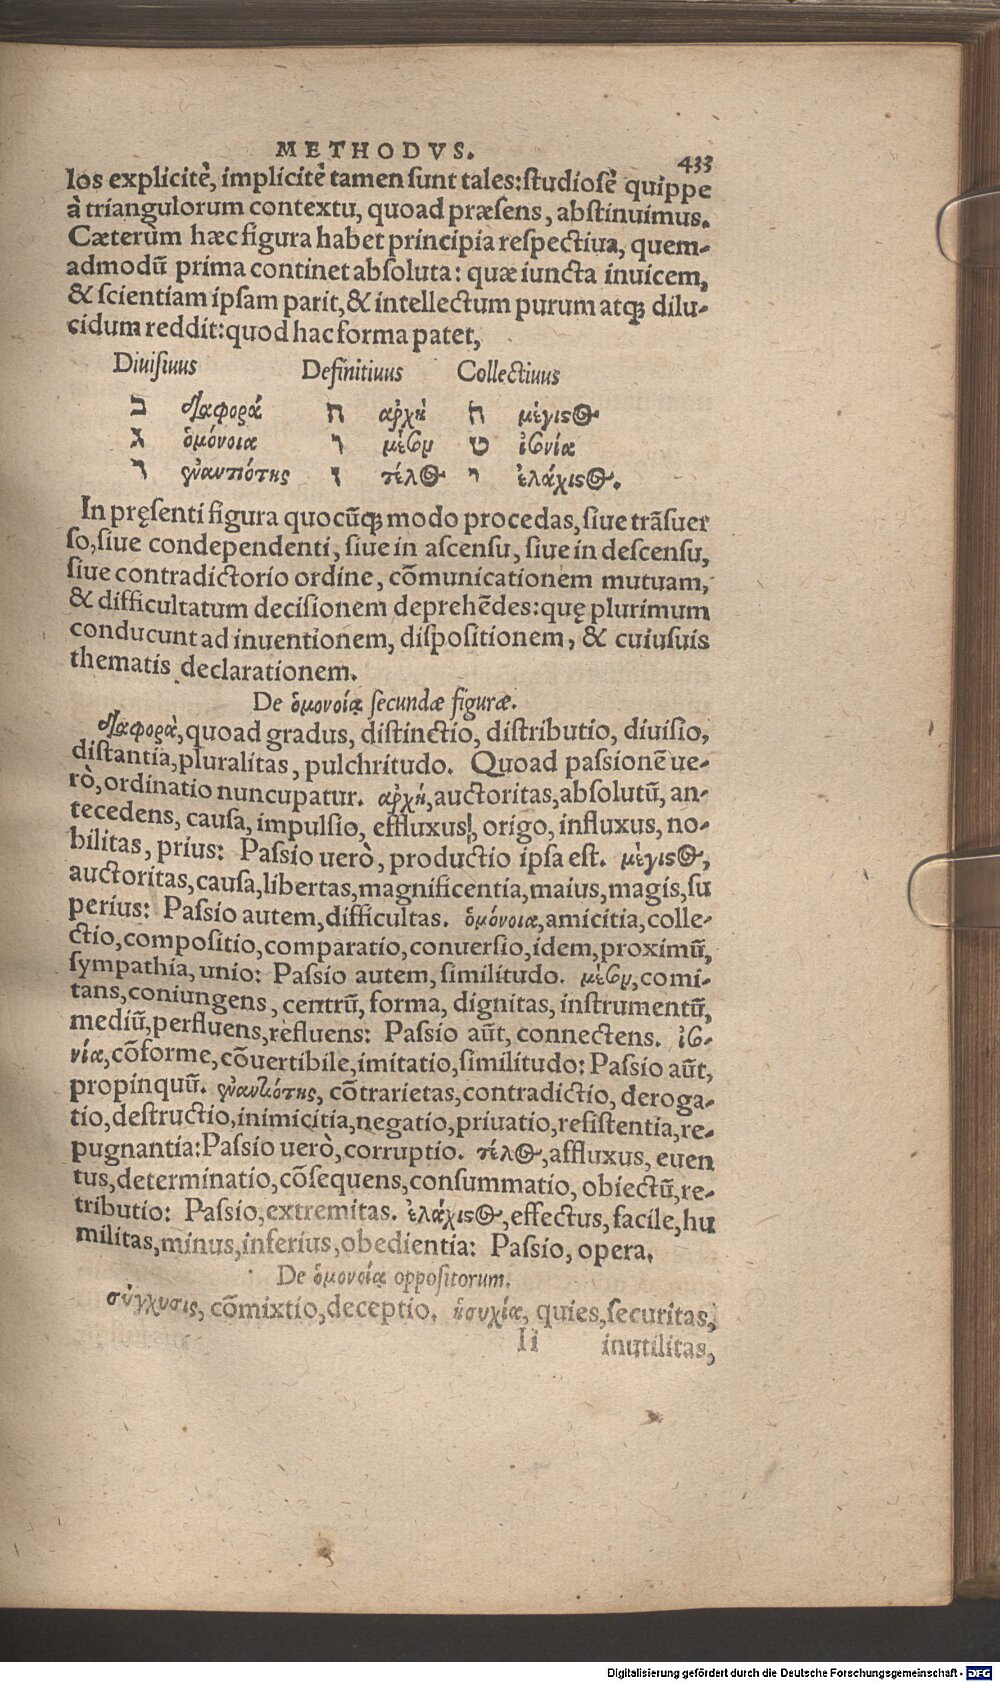 METHODVS. 433
los explicitè, implicitè tamen sunt tales: studiosè quippe
à triangulorum contextu, quoad præsens, abstinuimus.
Cæterùm hæc figura habet principia respectiua, quem-
admodū prima continet absoluta: quæ iuncta inuicem,
& scientiam ipsam parit, & intellectum purum atq; dilu-
cidum reddit: quod hac forma patet,
Diuisiuus Definitiuus Collectiuus
ב διαφορά ח ἀρχὴ ח μέγιστος
ג ὁμόνοια ו μέσον ט ἰσονία
ד ἐναντιότης ז τέλος י ἐλάχιστος.
In pręsenti figura quocūq; modo procedas, siue trāsuer
so, siue condependenti, siue in ascensu, siue in descensu,
siue contradictorio ordine, cōmunicationem mutuam,
& difficultatum decisionem deprehēdes: quę plurimum
conducunt ad inuentionem, dispositionem, & cuiusuis
thematis declarationem.
De ὁμονοίᾳ secundæ figuræ.
διαφορὰ, quoad gradus, distinctio, distributio, diuisio,
distantia, pluralitas, pulchritudo. Quoad passionē ue-
rò, ordinatio nuncupatur. ἀρχὴ, auctoritas, absolutū, an-
tecedens, causa, impulsio, effluxus, origo, influxus, no-
bilitas, prius: Passio uerò, productio ipsa est. μέγιστος,
auctoritas, causa, libertas, magnificentia, maius, magis, su
perius: Passio autem, difficultas. ὁμόνοια, amicitia, colle-
ctio, compositio, comparatio, conuersio, idem, proximū,
sympathia, unio: Passio autem, similitudo. μέσον, comi-
tans, coniungens, centrū, forma, dignitas, instrumentū,
mediū, perfluens, refluens: Passio aūt, connectens. ἰσο-
νία, cōforme, cōuertibile, imitatio, similitudo: Passio aūt,
propinquū. ἐναντιότης, cōtrarietas, contradictio, deroga-
tio, destructio, inimicitia, negatio, priuatio, resistentia, re-
pugnantia: Passio uerò, corruptio. τέλος, affluxus, euen
tus, determinatio, cōsequens, consummatio, obiectū, re-
tributio: Passio, extremitas. ἐλάχιστος, effectus, facile, hu
militas, minus, inferius, obedientia: Passio, opera.
De ὁμονοίᾳ oppositorum.
σύγχυσις, cōmixtio, deceptio. ἡσυχία, quies, securitas,
Ii inutilitas,
Digitalisierung gefördert durch die Deutsche Forschungsgemeinschaft - DFG